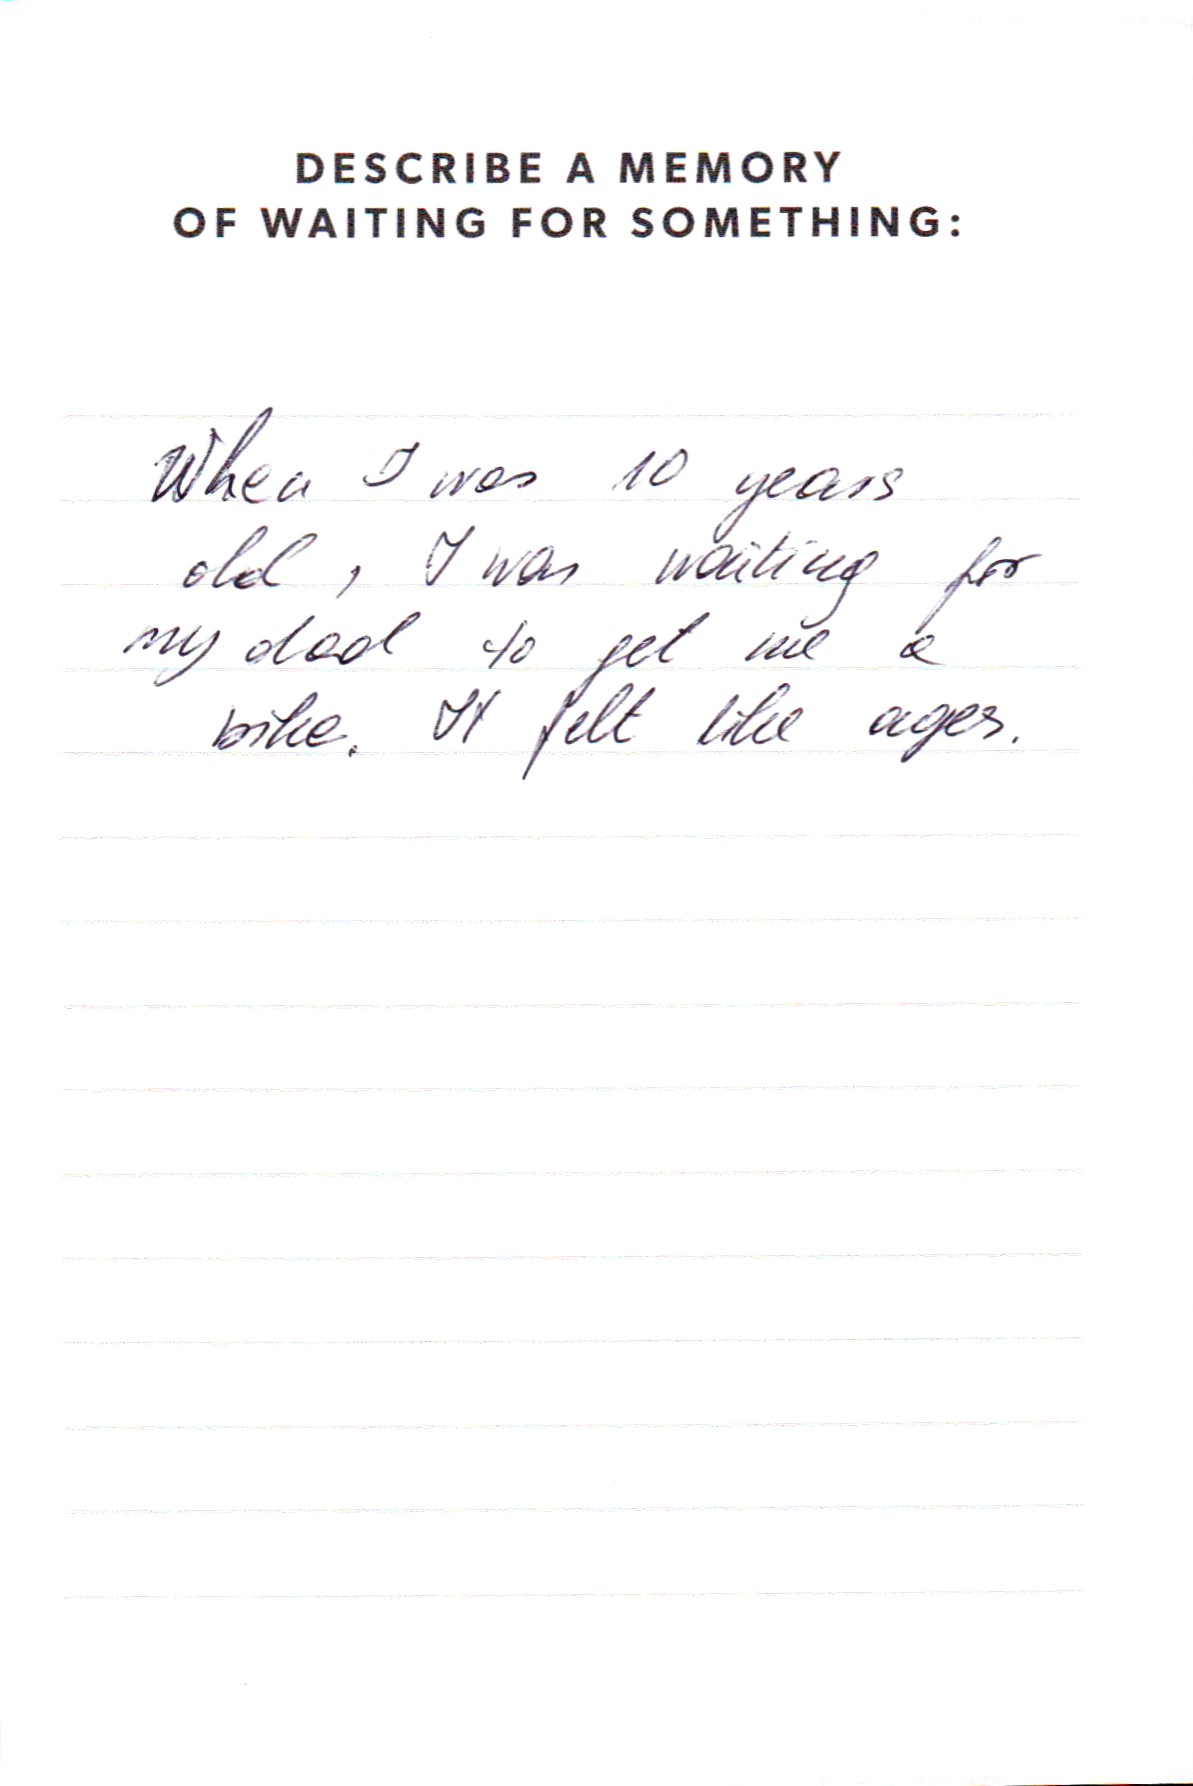 DESCRIBE A MEMORY
OF WAITING FOR SOMETHING:
When I was 10 years
old, I was waiting for
my dad to get me a
bike. It felt like ages.